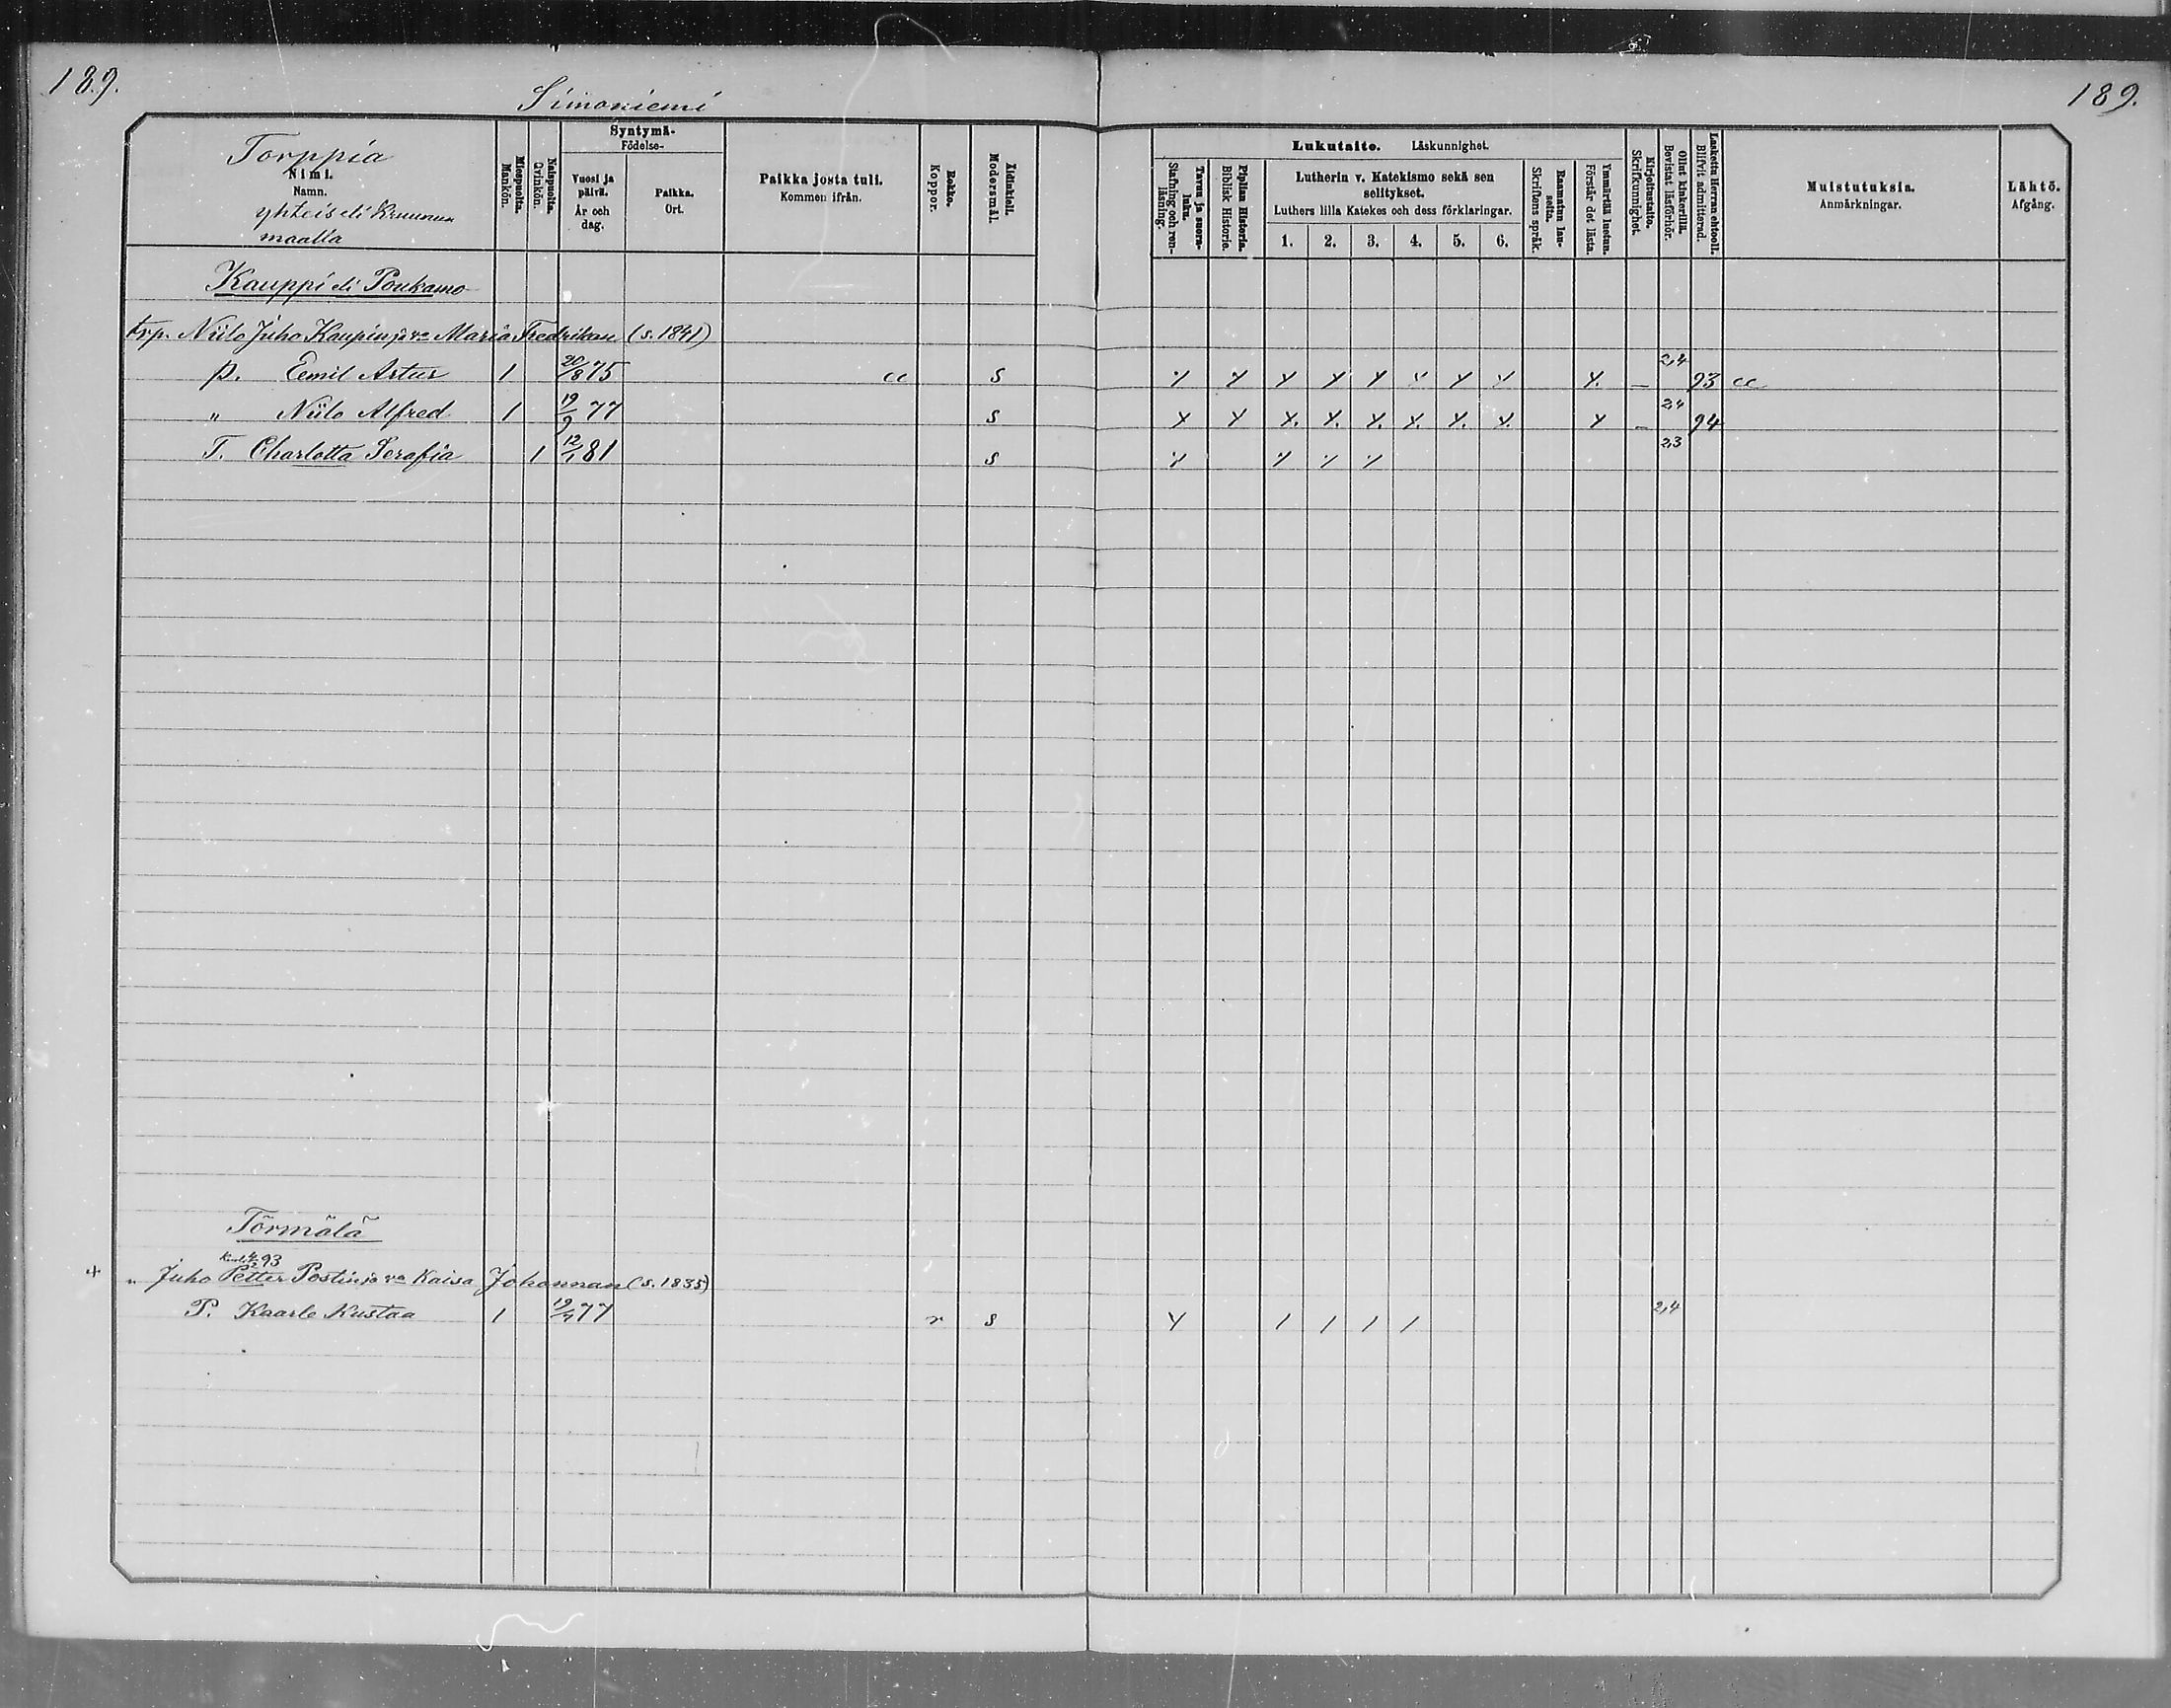 189.
Simoniemi
189.
Torppia
Nimi.
Namn.
yhteis eli Kruunun
maalla
Miespuolta.
Mankön.
Naispuolta.
Qvinkön.
Syntymä-
Födelse-
Vuosi ja
päivä.
År och
dag.
Paikka.
Ort.
Paikka josta tuli.
Kommen ifrån.
Rokko.
Koppor.
Äidinkieli.
Modersmål.
Lukutaito. Läskunnighet.
Tavuu ja suora-
luku.
Stafning och ren-
läsning.
Piplian Historia.
Biblisk Historie.
Lutherin v. Katekismo sekä sen
selitykset.
Luthers lilla Katekes och dess förklaringar.
1. 2. 3. 4. 5. 6.
Raamatun lau-
seita.
Skriftens språk.
Ymmärtää luetun.
Förstår det lästa.
Kirjoitustaito.
Skrifkunnighet.
Ollut kinkerillä.
Bevistat läsförhör.
Laskettu Herran ehtooll.
Blifvit admitterad.
Muistutuksia.
Anmärkningar.
Lähtö.
Afgång.
Kauppi eli Poukamo
trp. Niilo Juho Kaupin ja va Maria Fredrikan (s. 1841)
p. Eemil Artur 1 20/8 75 cc s y y y y y y y y y. – 2,4 93 cc
" Niilo Alfred 1 19/9 77 s y y y. y. y. y. y. y. y – 2,4 94
T. Charlotta Serafia 1 12/1 81 s y y y y 2,3
Törmälä
93
+ " Juho Petter Postin ja va Kaisa Johannan (s. 1835)
P. Kaarle Kustaa 1 19/7 77 r s y / / / / 2,4